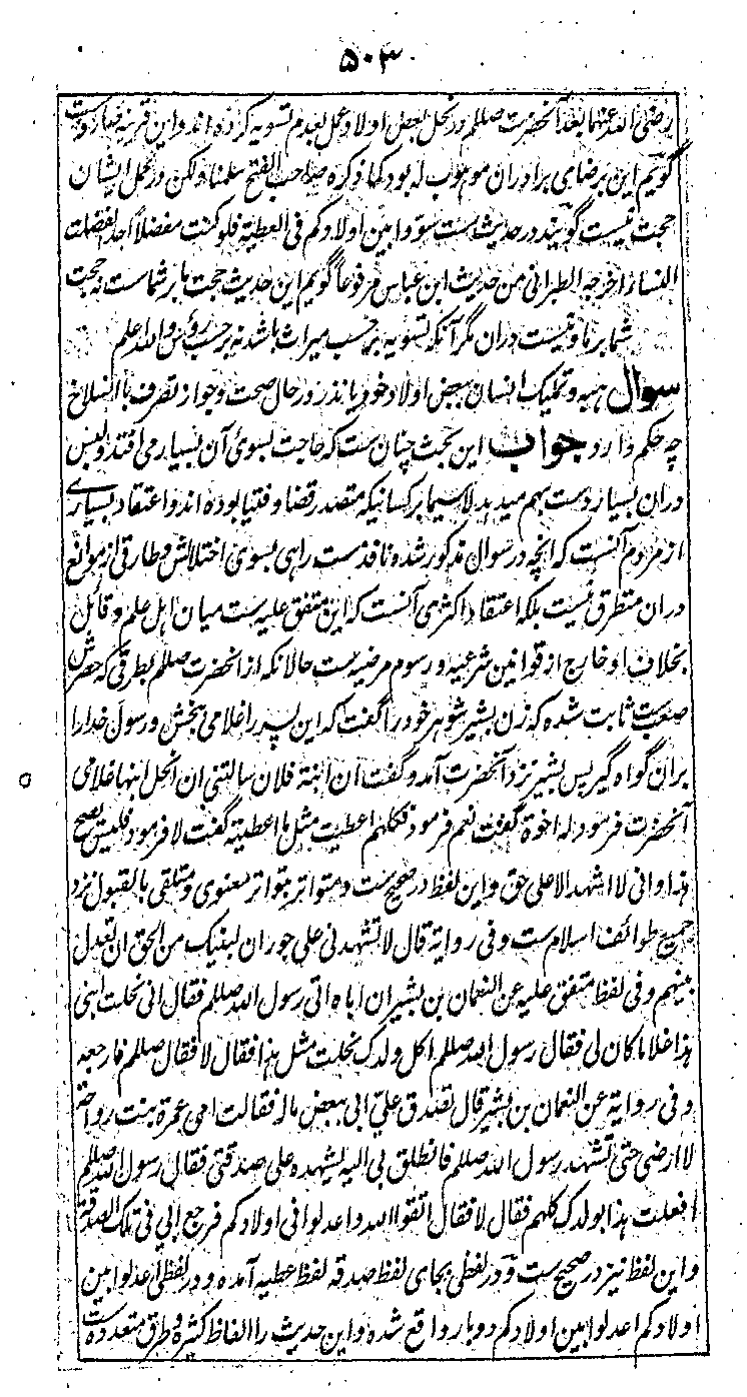 ۵۰۳
رضی الله عنهما بعد آنحضرت صللم در نحل بعض اولاد و عمل بعدم تسویه کرده اند و این قرینه
گویم این برضای برادران موهوب له بود کما ذکره صاحب الفتح سلمنا و لکن در عمل ایشان
حجت نیست گویند در حدیث ست سووا بین اولادکم فی العطیة فلو کنت مفضلا احدا لفضلت
النساء اخرجه الطبرانی من حدیث ابن عباس مرفوعا گویم این حدیث حجت ما بر شماست نه حجت
شما بر ما و نیست دران مگر آنکه تسویه بر حسب میراث باشد نه بر حسب رؤس والله اعلم
سوال هبه و تملیک انسان ببعض اولاد خود یا نذر در حال صحت و جواز تصرف با انسلاخ
چه حکم دارد جواب این بحث چنان ست که حاجت بسوی آن بسیار می افتد و لبس
دران بسیار دست بهم میدهد لا سیما بر کسانیکه متصدر قضا و فتیا بوده اند و اعتقاد بسیاری
از مردم آنست که آنچه در سوال مذکور شده نافذ ست راهی بسوی اختلالش و طارقی از موانع
دران متطرق نیست بلکه اعتقاد اکثری آنست که این متفق علیه ست میان اهل علم و قائل
بخلاف او خارج از قوانین شرعیه و رسوم مرضیه ست حالانکه از آنحضرت صللم بطرقی که حصرش
صعب ست ثابت شده که زن بشیر شوهر خود را گفت که این پسر را غلامی ببخش و رسول خدا را
بران گواه گیر پس بشیر نزد آنحضرت آمد و گفت ان ابنة فلان سالتنی ان انحل ابنها غلامی
آنحضرت فرمود له اخوة گفت نعم فرمود فکلهم اعطیت مثل ما اعطیته گفت لا فرمود فلیس یصلح
هذا و انی لا اشهد الا علی حق و این لفظ در صحیح ست و متواتر بتواتر معنوی و متلقی بالقبول نزد
جمیع طوائف اسلام ست و فی روایة قال لا تشهدنی علی جور ان لبنیک من الحق ان تعدل
بینهم و فی لفظ متفق علیه عن النعمان بن بشیر ان اباه اتی رسول الله صللم فقال انی نحلت ابنی
هذا غلاما کان لی فقال رسول الله صللم اکل ولدک نحلت مثل هذا فقال لا فقال صللم فارجعه
و فی روایة عن النعمان بن بشیر قال تصدق علی ابی ببعض ماله فقالت امی عمرة بنت رواحة
لا ارضی حتی تشهد رسول الله صللم فانطلق بی الیه لیشهده علی صدقتی فقال رسول الله صللم
افعلت هذا بولدک کلهم فقال لا فقال اتقوا الله و اعدلوا فی اولادکم فرجع ابی فی تلک الصدقة
و این لفظ نیز در صحیح ست و در لفظی بجای لفظ صدقه لفظ عطیه آمده و در لفظی اعدلوا بین
اولادکم اعدلوا بین اولادکم دو بار واقع شده و این حدیث را الفاظ کثیره و طرق متعدده ست